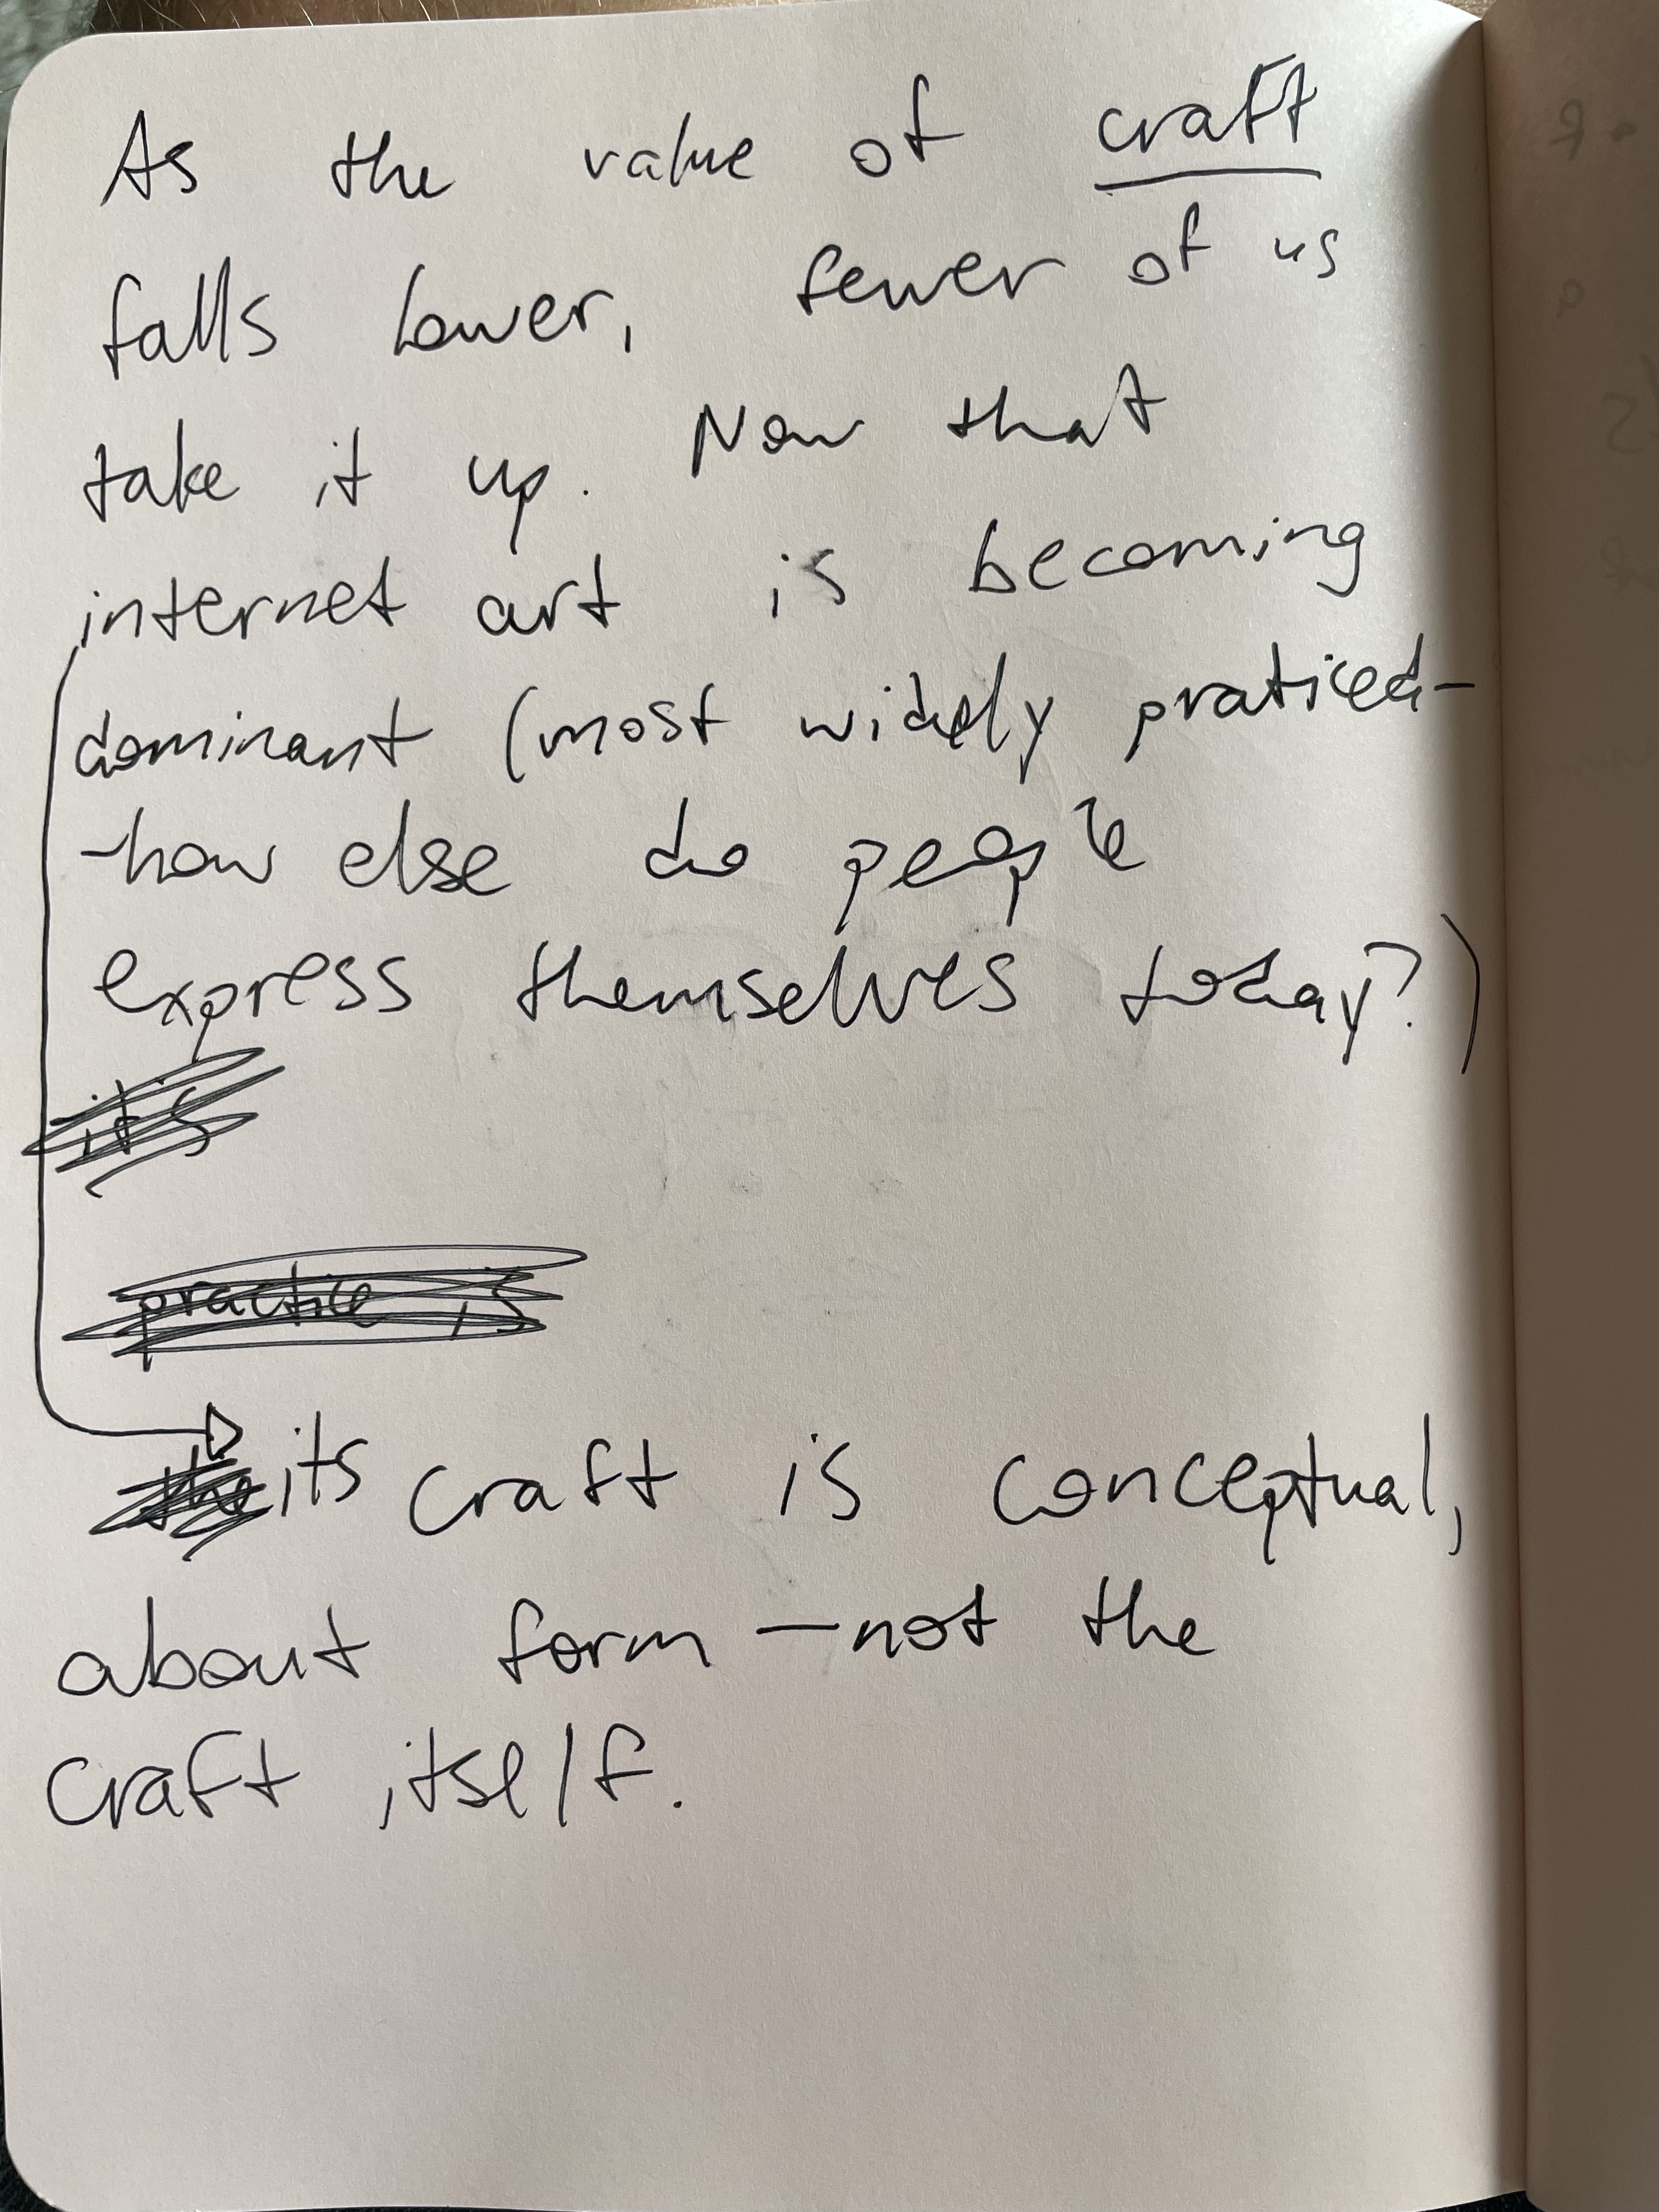 As the value of craft
falls lower, fewer of us
take it up. Now that
internet art is becoming
dominant (most widely praticed-
-how else do people
express themselves today?)
it's
practice is
its craft is conceptual,
about form —not the
craft itself.